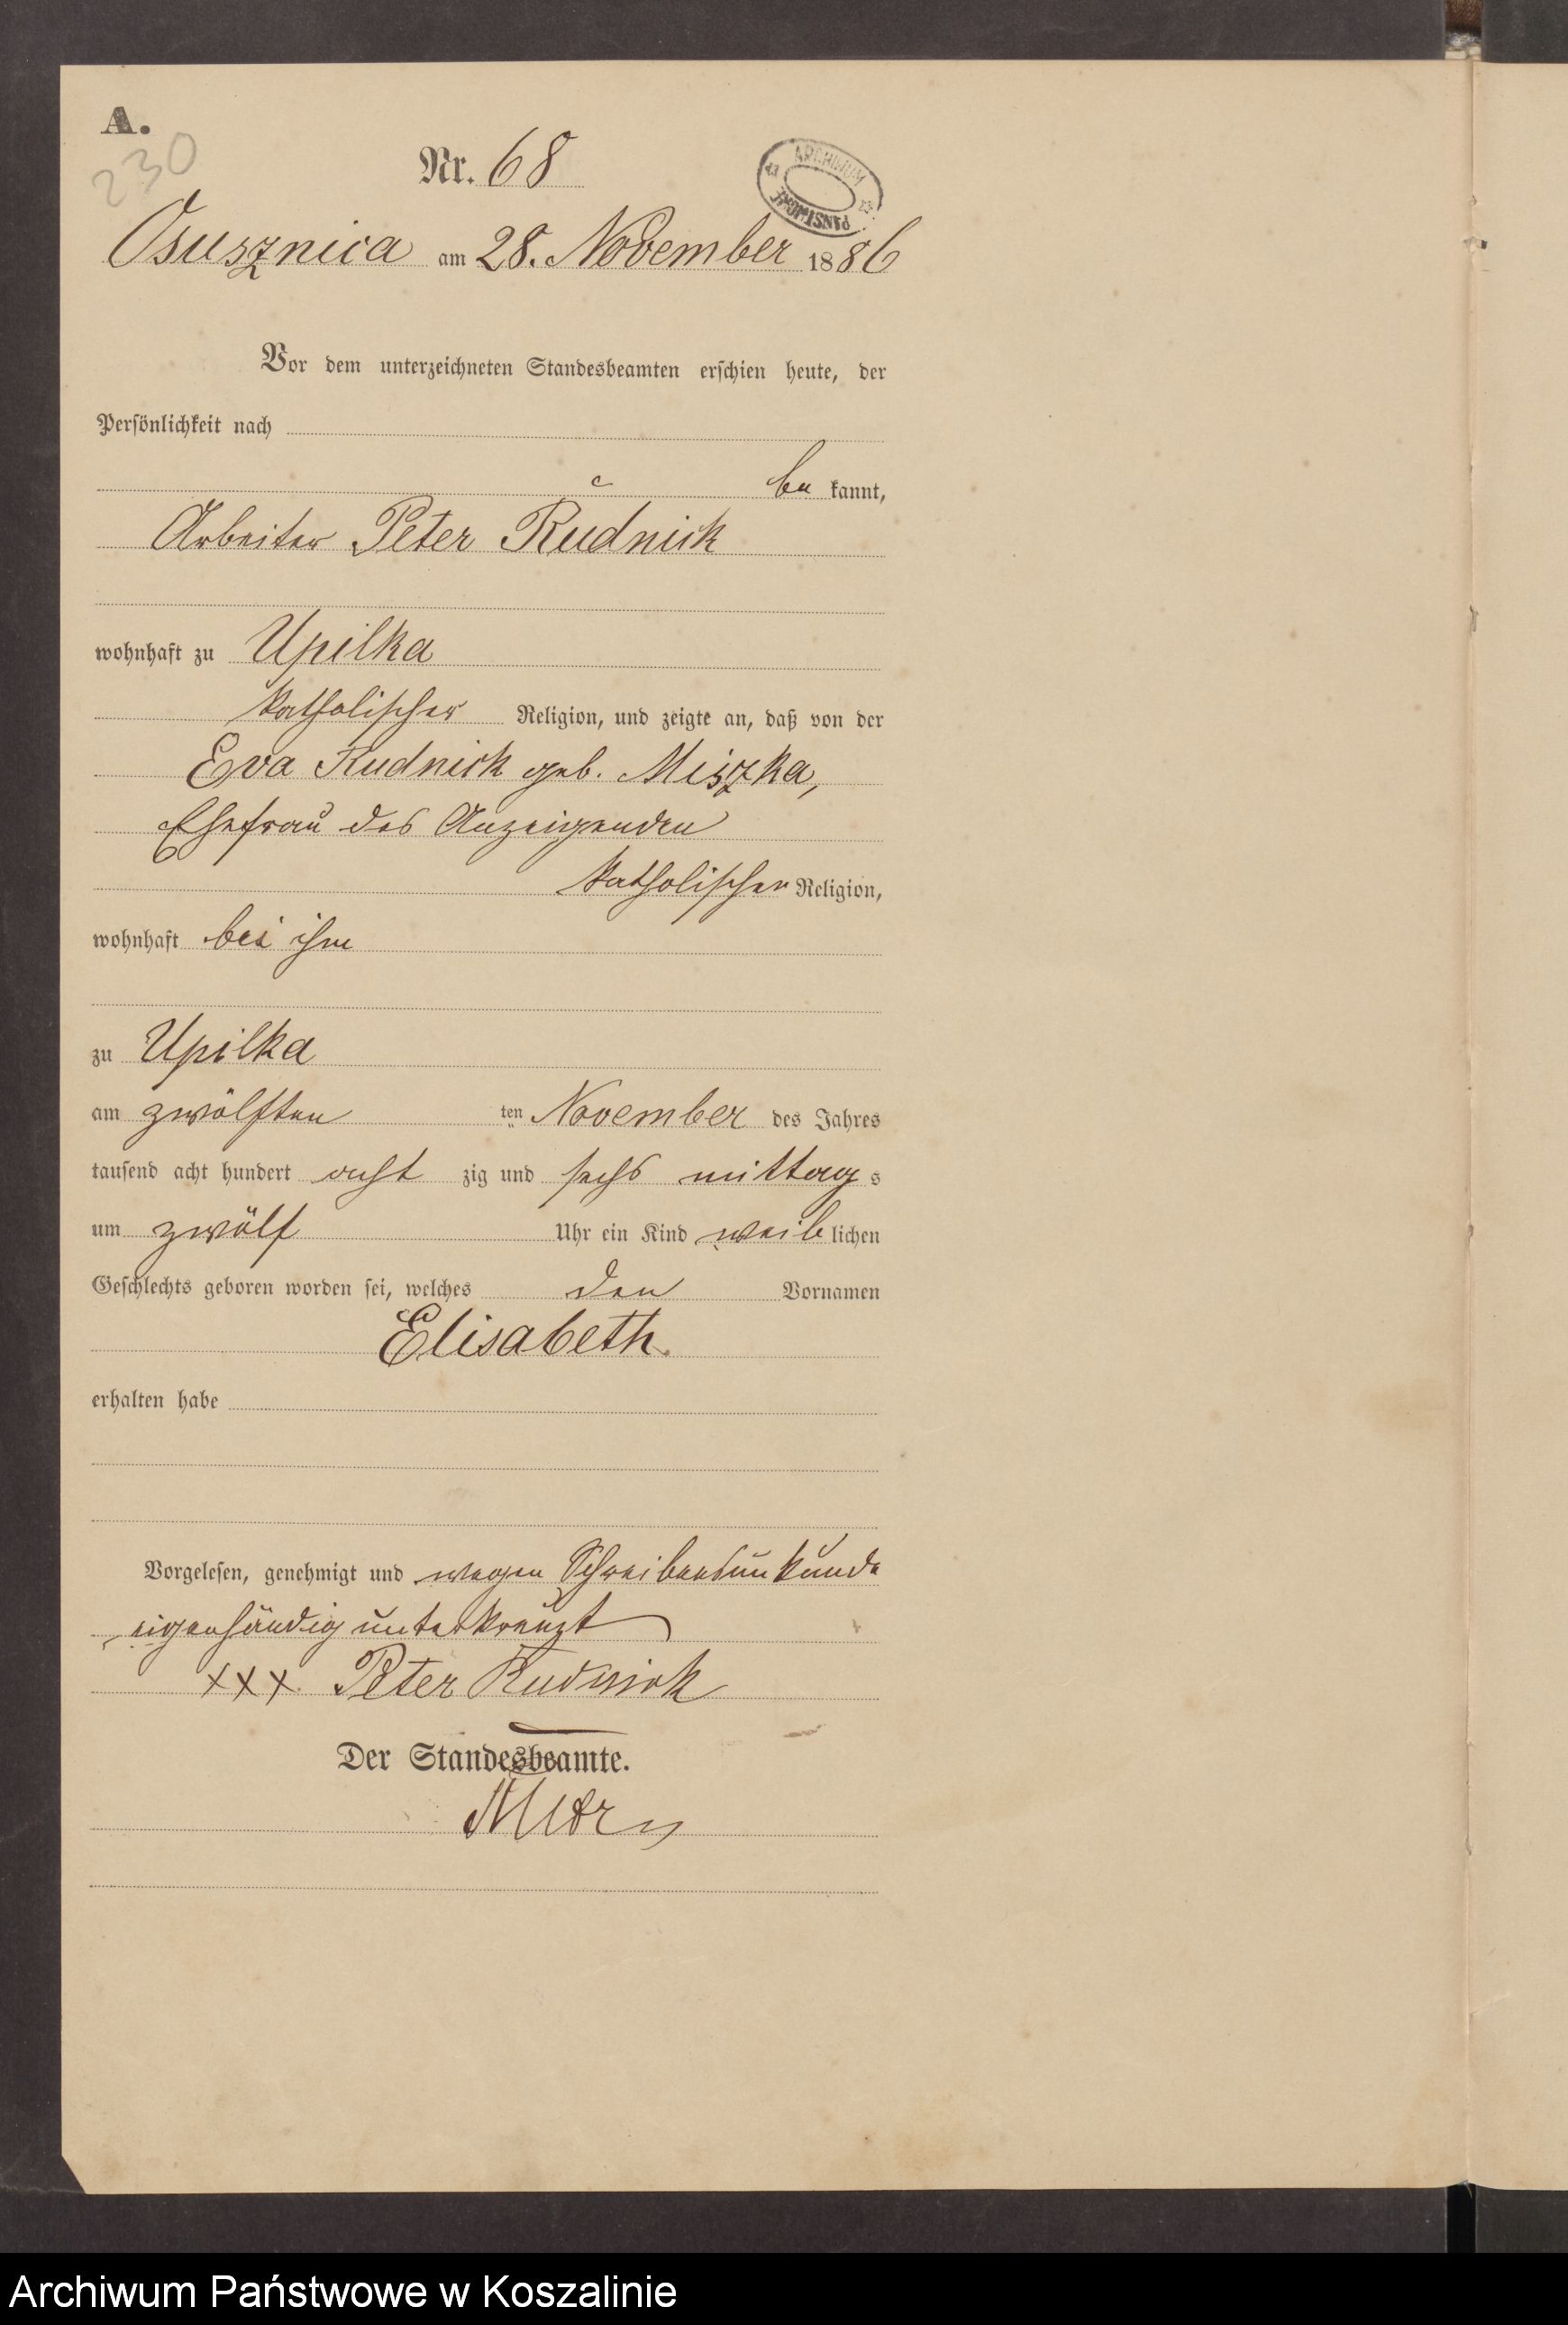 A.
230
Nr. 68
ARCHIWUM PAŃSTWOWE
Osusznica am 28. November 1886
Vor dem unterzeichneten Standesbeamten erschien heute, der
Persönlichkeit nach
be kannt,
Arbeiter Peter Rudnick
wohnhaft zu Upilka
katholischer Religion, und zeigte an, daß von der
Eva Rudnick geb. Miszka,
Ehefrau des Anzeigenden
katholischer Religion,
wohnhaft bei ihm
zu Upilka
am zwölften ten November des Jahres
tausend acht hundert acht zig und sechs mittag s
um zwölf Uhr ein Kind weib lichen
Geschlechts geboren worden sei, welches den Vornamen
Elisabeth.
erhalten habe
Vorgelesen, genehmigt und wegen Schreibensunkunde
eigenhändig unterkreuzt
xxx. Peter Rudnick
Der Standesbeamte.
Archiwum Państwowe w Koszalinie